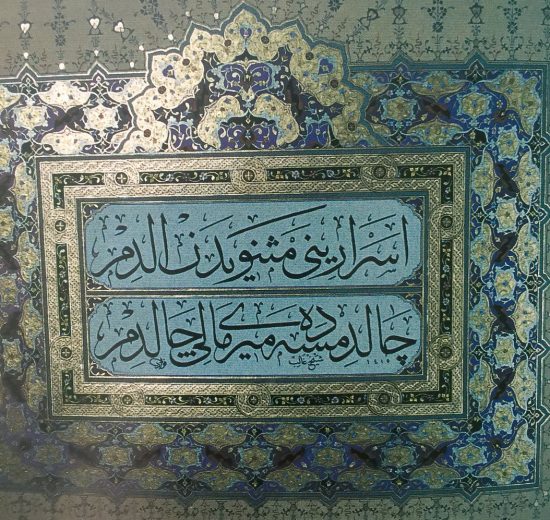 اسرارینی مثنویدن الدم
چالدمسه ده میری مالی چالدم
شیخ غالب